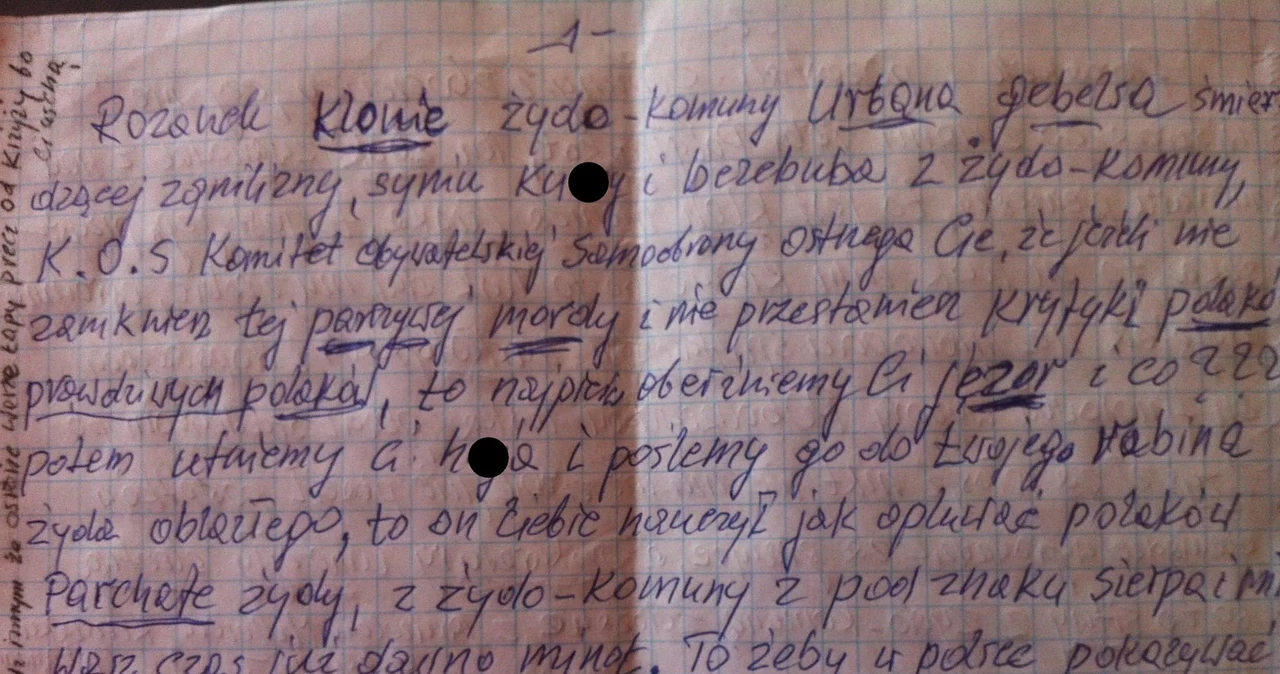 -1-
Rozanek klonie żydo-komuny Urbana gebelsa śmier
dzącej zgnilizny, synu ku y i belzebuba z żydo-komuny,
K.O.S Komitet Obywatelskiej Samoobrony ostrzega Cię, że jeżeli nie
zamkniesz tej parszywej mordy i nie przestaniesz krytyki polakó
prawdziwych polaków, to najpierw oberżniemy Ci jęzor i co ???
potem utniemy ci h a i poślemy go do twojego rabina
żyda oblazłego, to on Ciebie nauczył jak opluwać polaków
Parchate żydy, z żydo-komuny z pod znaku sierpa i mł
Wasz czas już dawno minął. To żeby w polsce pokazywać
innym że ostrzec weźże łapy precz od Krzyży bo